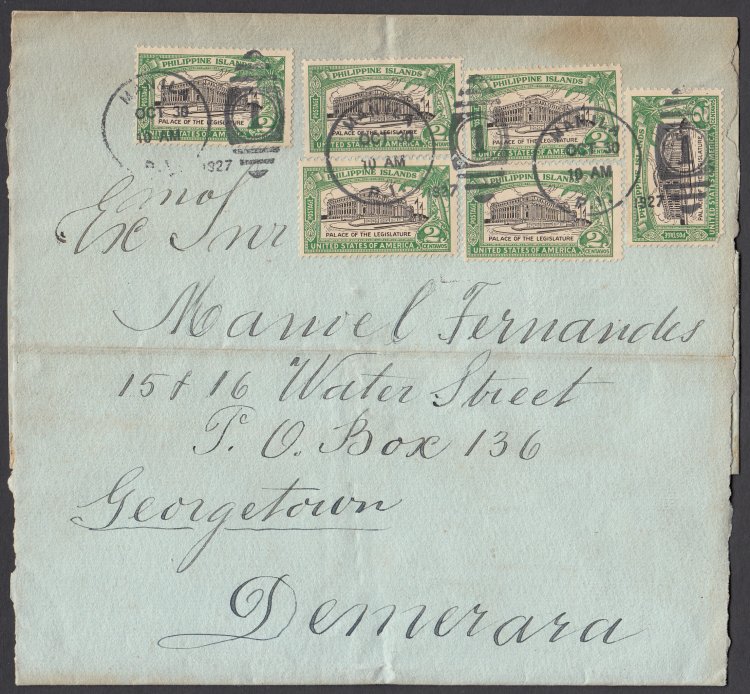 PHILIPPINE ISLANDS
POSTAGE
PALACE OF THE LEGISLATURE
2 CENTAVOS
UNITED STATES OF AMERICA
PHILIPPINE ISLANDS
POSTAGE
2
UNITED STATES OF AMERICA CENTAVOS
PHILIPPINE ISLANDS
PALACE OF THE LEGISLATURE
2
UNITED STATES OF AMERICA CENTAVOS
PHILIPPINE ISLANDS
POSTAGE
PALACE OF THE LEGISLATURE
2
UNITED STATES OF AMERICA CENTAVOS
POSTAGE
PALACE OF THE LEGISLATURE
2
UNITED STATES OF AMERICA CENTAVOS
PALACE OF THE LEGISLATURE
2
UNITED STATES OF AMERICA CENTAVOS
MANILA
OCT 30
10 AM
P.I. 1927
1
MANILA
OCT 30
10 AM
P.I. 1927
1
MANILA
OCT 30
10 AM
P.I. 1927
Exmo
Snr
Manoel Fernandes
15 & 16 Water Street
P. O. Box 136
Georgetown
Demerara